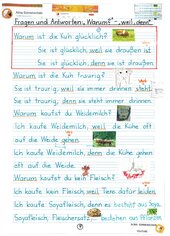 Fragen und Antworten: „Warum?" - „weil, denn"
Warum ist die Kuh glücklich?
Sie ist glücklich, weil sie draußen ist
Sie ist glücklich, denn sie ist draußen.
Warum ist die Kuh traurig?
Sie ist traurig, weil sie immer drinnen steht.
Sie ist traurig, denn sie steht immer drinnen.
Warum kaufst du Weidemilch?
Ich kaufe Weidemilch, weil die Kühe oft
auf die Weide gehen.
Ich kaufe Weidemilch, denn die Kühe gehen
oft auf die Weide.
Warum kaufst du kein Fleisch?
Ich kaufe kein Fleisch, weil Tiere dafür leiden.
Ich kaufe Soyafleisch, denn es besteht aus Soya.
Soyafleisch, Fleischersatz, bestehen aus Pflanzen